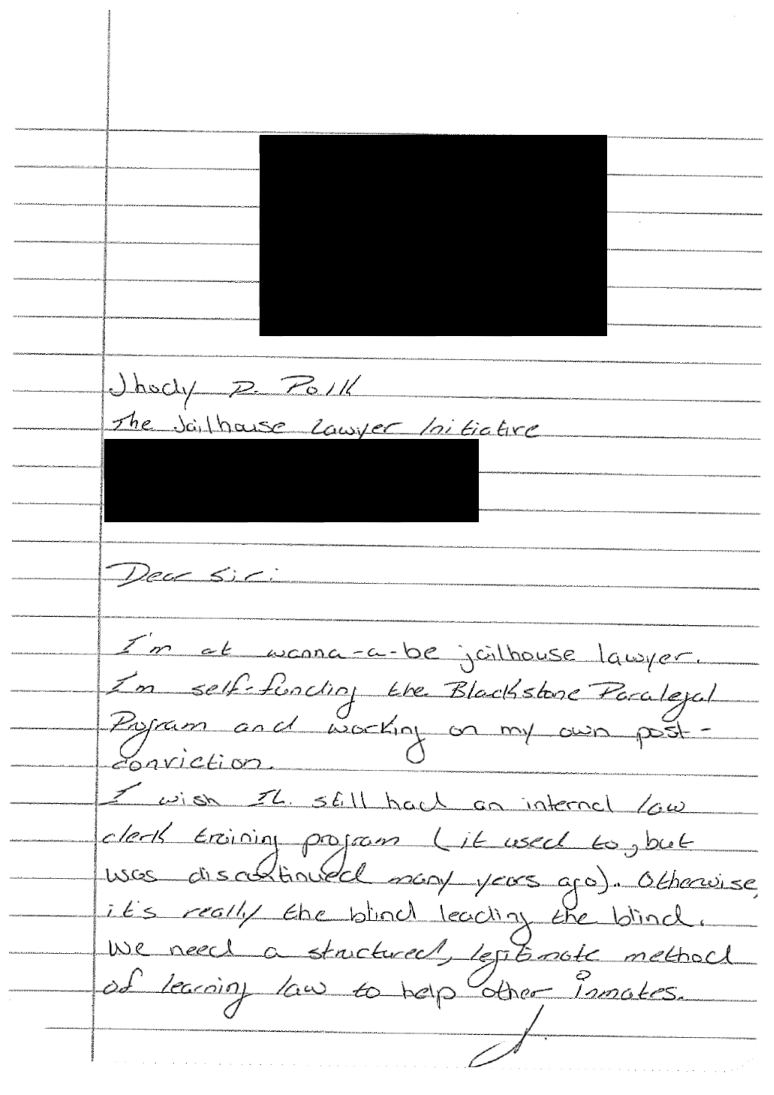 Jhody D. Polk
The Jailhouse Lawyer Initiative
Dear Sir:
I'm at wanna-a-be jailhouse lawyer.
I'm self-funding the Blackstone Paralegal
Program and working on my own post-
conviction.
I wish IL. still had an internal law
clerk training program (it used to, but
was discontinued many years ago). Otherwise,
it's really the blind leading the blind.
We need a structured, legitimate method
of learning law to help other inmates.
J.